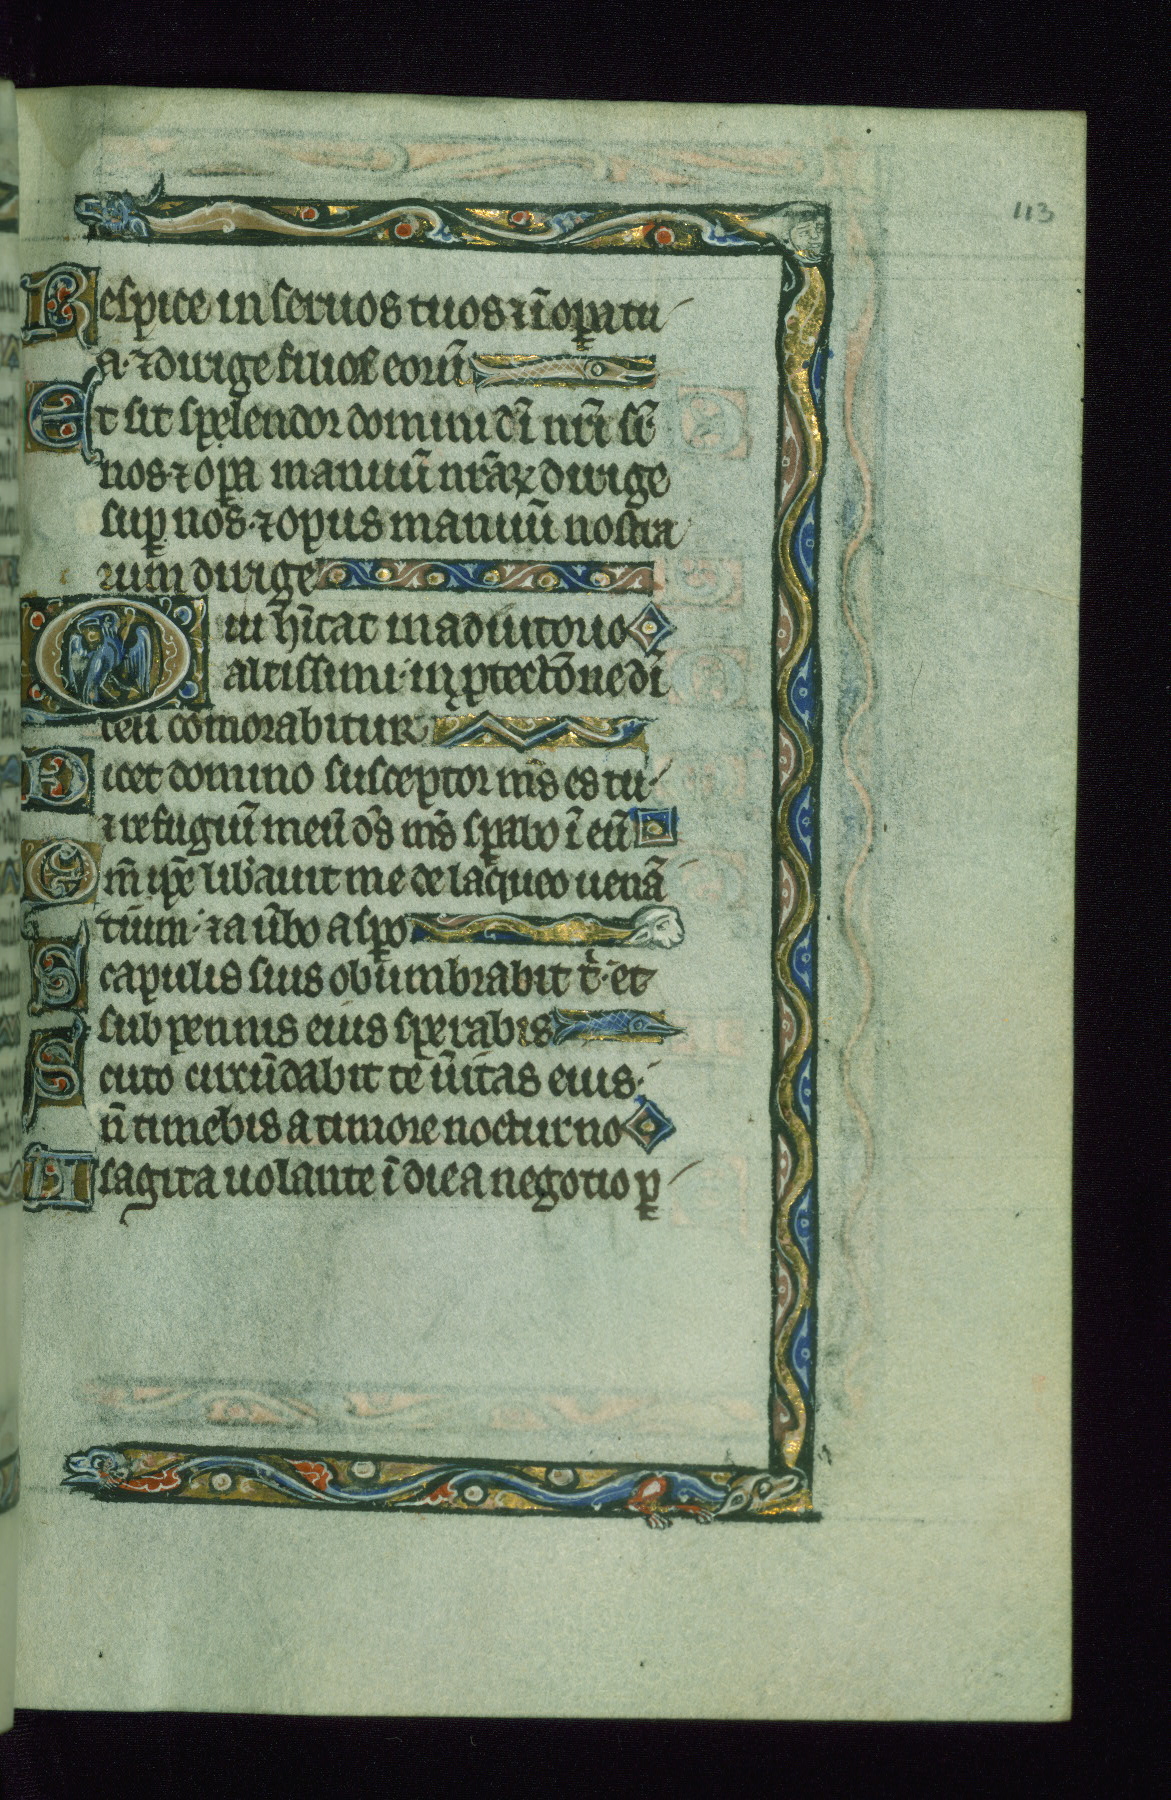 113
Respice in seruos tuos ⁊ ī op̲a tu
a· ⁊ dirige filios eorū
Et sit splendor domini dī nr̄i sr̄
nos ⁊ op̲a manuū nr̄aꝝ dirige
sup̲ nos· ⁊ opus manuū nostra
rum dirige
Qui h̄itat in adiutorio
altissimi· in ꝓtectōne dī
celi comorabitur
Dicet domino susceptor m̄s es tu·
⁊ refugiū meū d̄s m̄s sp̲abo ī eū
Qm̄ ip̄e lib̄auit me de laqueo uenā
tium· ⁊ a ūbo asp̲o
Scapulis suis obumbrabit t̄· et
sub pennis eius sperabis
Scuto circūdabit te ūitas eius·
n̄ timebis a timore nocturno
A sagita uolante ī die a negotio p̲